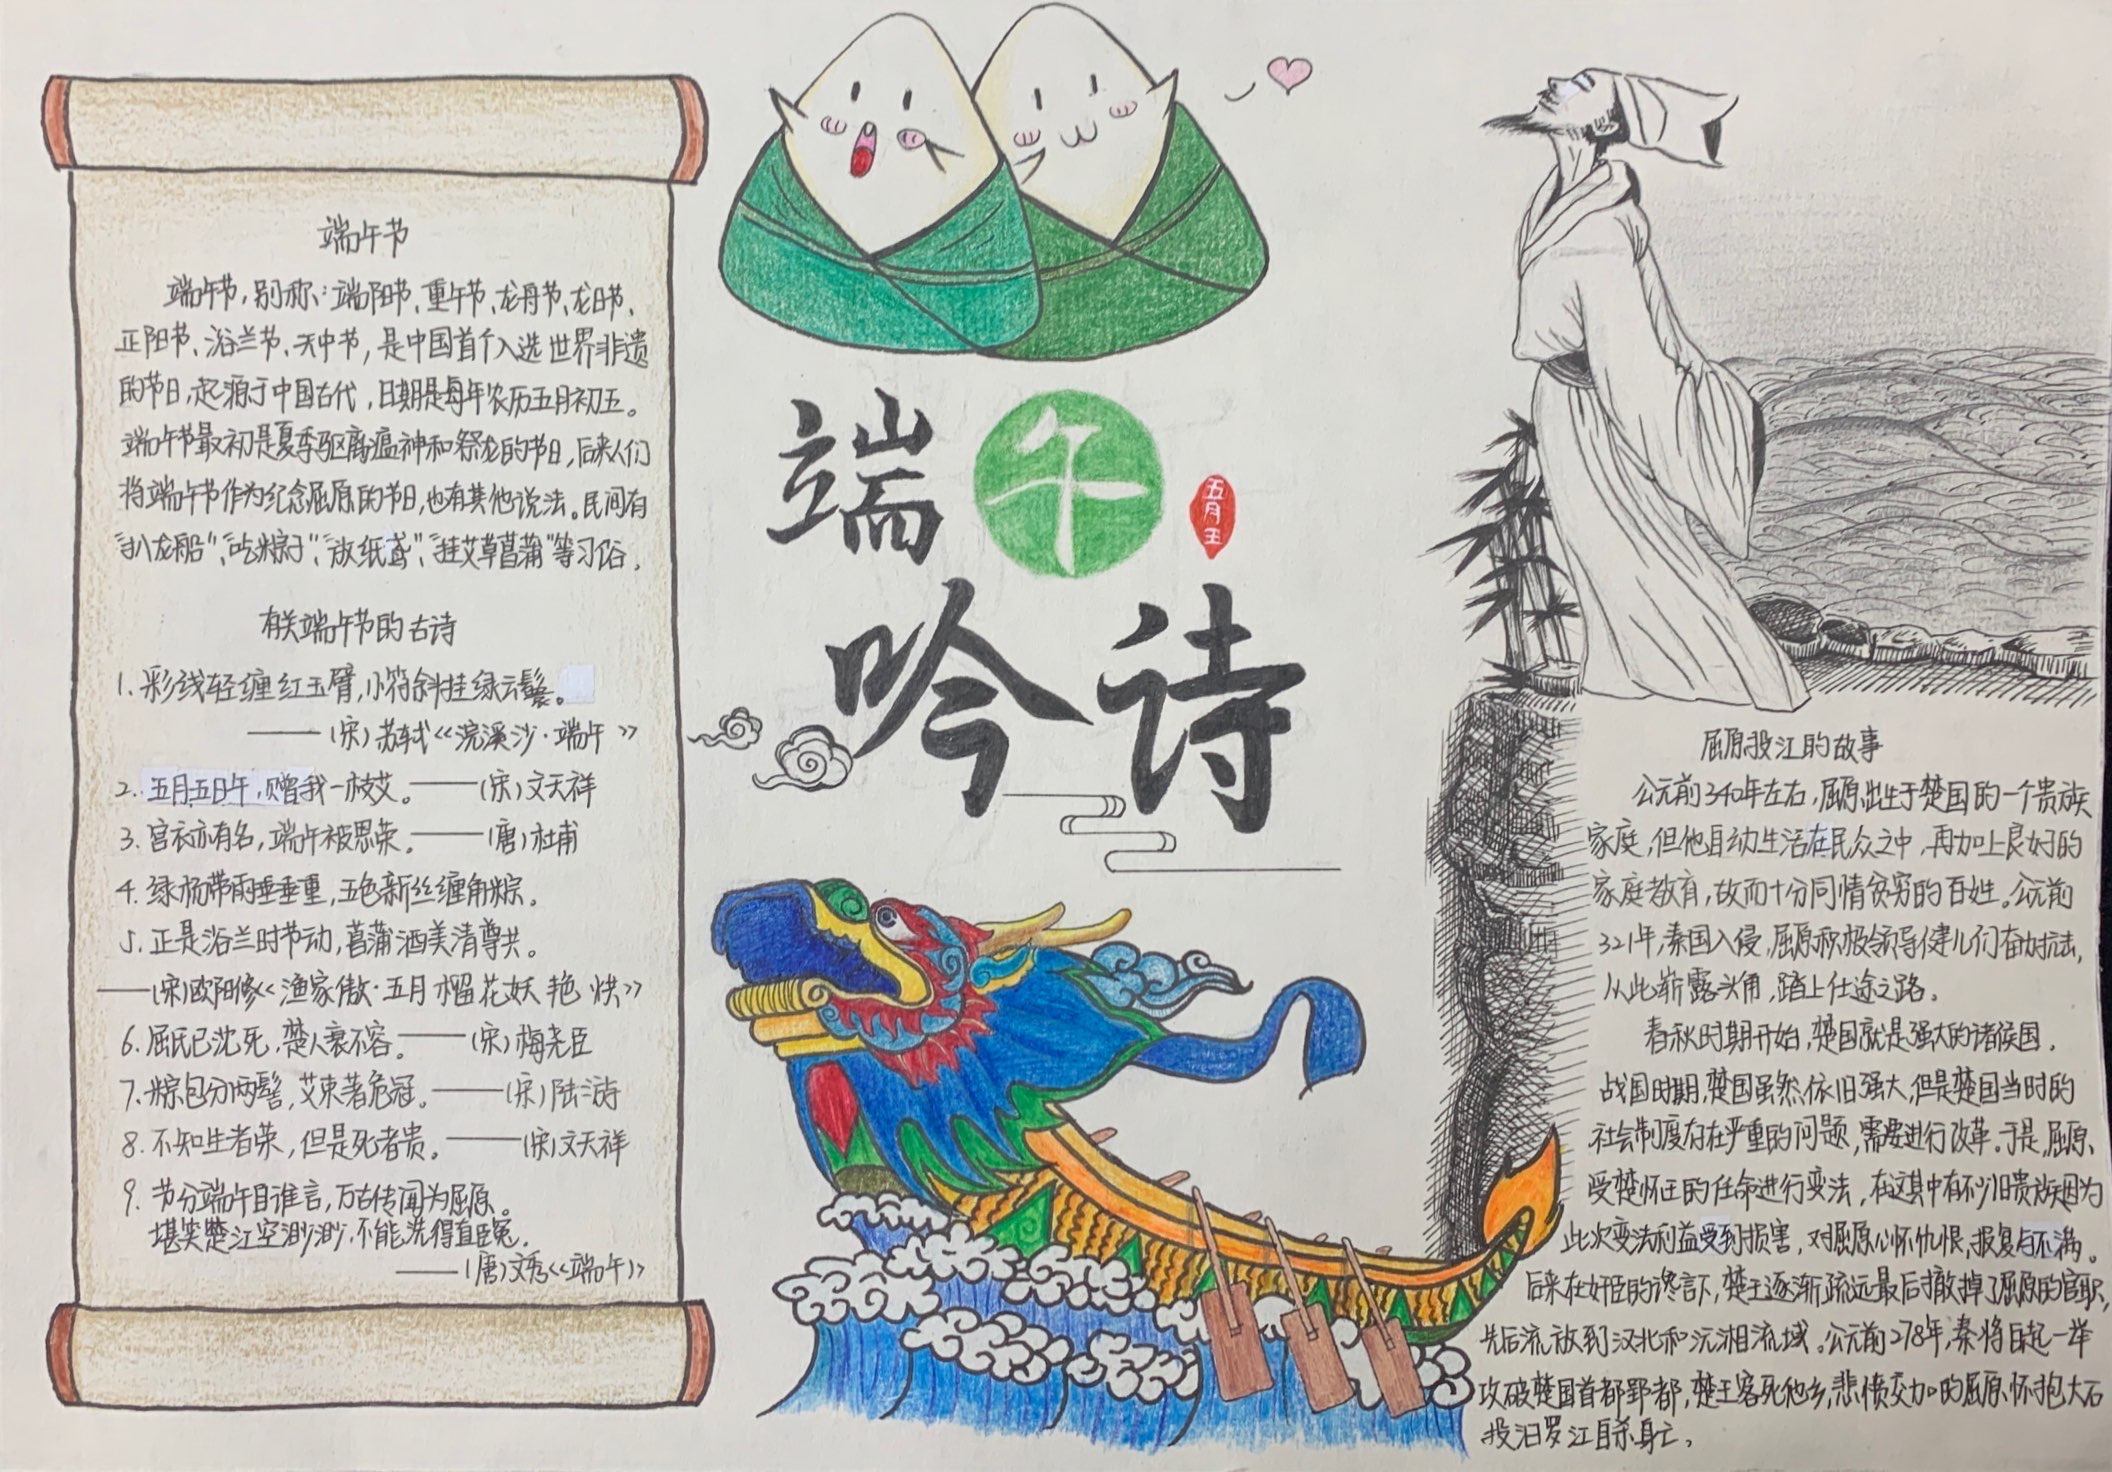 端午节
端午节，别称：端阳节、重午节、龙舟节、龙日节、
正阳节、浴兰节、天中节，是中国首个入选世界非遗
的节日，起源于中国古代，日期是每年农历五月初五。
端午节最初是夏季驱离瘟神和祭龙的节日，后来人们
将端午节作为纪念屈原的节日，也有其他说法。民间有
“扒龙船”、“吃粽子”、“放纸鸢”、“挂艾草菖蒲”等习俗。
有关端午节的古诗
1. 彩线轻缠红玉臂，小符斜挂绿云鬟。
——（宋）苏轼《浣溪沙·端午》
2. 五月五日午，赠我一枝艾。——（宋）文天祥
3. 宫衣亦有名，端午被恩荣。——（唐）杜甫
4. 绿杨带雨垂垂重，五色新丝缠角粽。
5. 正是浴兰时节动，菖蒲酒美清尊共。
——（宋）欧阳修《渔家傲·五月榴花妖艳烘》
6. 屈氏已沈死，楚人衰不容。——（宋）梅尧臣
7. 粽包分两髻，艾束著危冠。——（宋）陆游
8. 不知生者荣，但是死者贵。——（宋）文天祥
9. 节分端午自谁言，万古传闻为屈原。
堪笑楚江空渺渺，不能洗得直臣冤。
——（唐）文秀《端午》
端午
五月五
吟诗
屈原投江的故事
公元前340年左右，屈原出生于楚国的一个贵族
家庭，但他自幼生活在民众之中，再加上良好的
家庭教育，故而十分同情贫穷的百姓。公元前
321年，秦国入侵，屈原积极领导健儿们奋力抗击，
从此崭露头角，踏上仕途之路。
春秋时期开始，楚国就是强大的诸侯国。
战国时期，楚国虽然依旧强大，但是楚国当时的
社会制度存在严重的问题，需要进行改革。于是，屈原
受楚怀王的任命进行变法，在这其中有不少旧贵族因为
此次变法利益受到损害，对屈原心怀仇恨，报复与不满。
后来在奸臣的谗言下，楚王逐渐疏远最后撤掉了屈原的官职，
先后流放到汉北和沅湘流域。公元前278年，秦将白起一举
攻破楚国首都郢都，楚王客死他乡，悲愤交加的屈原怀抱大石
投汨罗江自杀身亡。